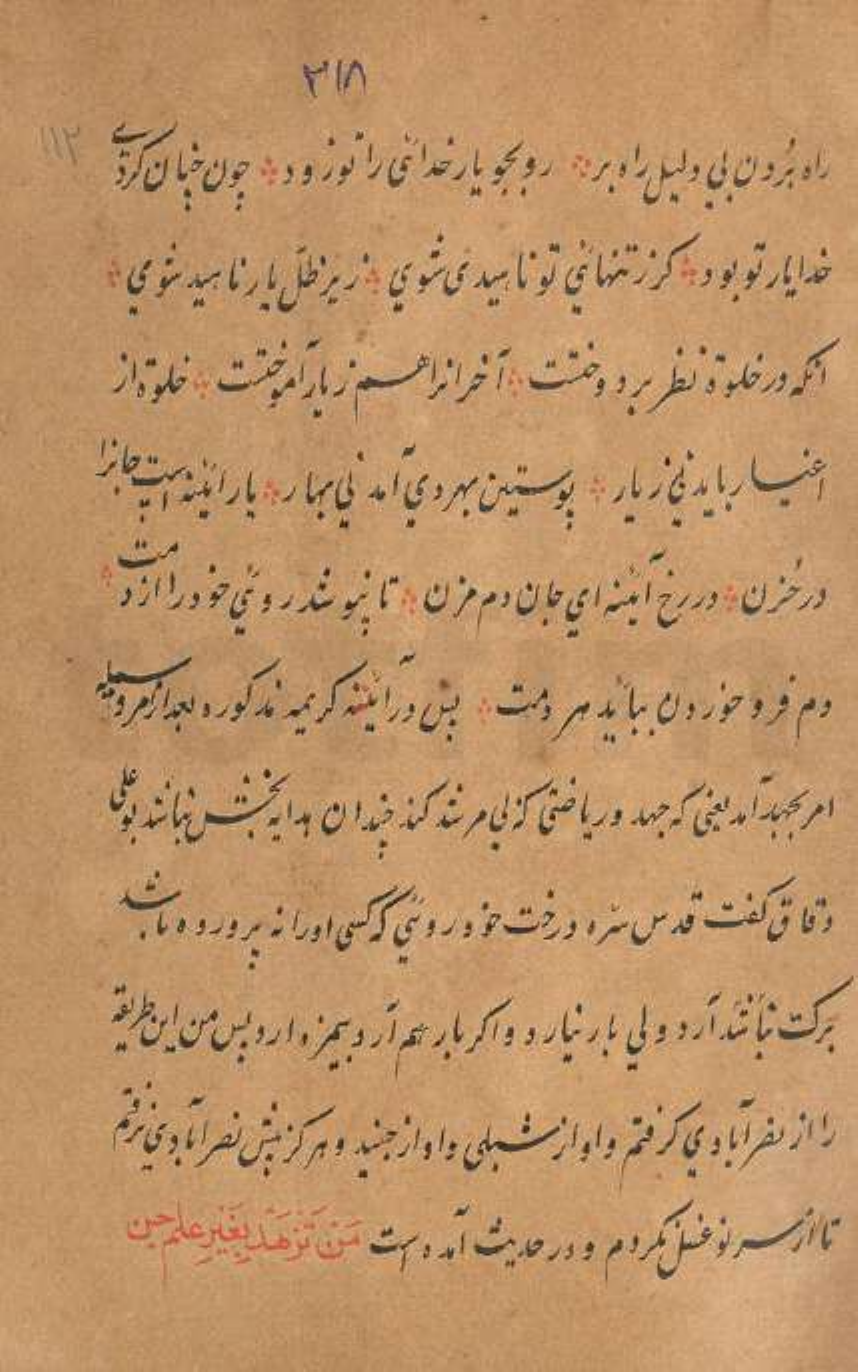 ۳۱۸
۱۱۲
راه بُرُون بی دلیل راه بر ؞ رو بجو یار خدائی را تو زود ؞ چون چنان کردی
خدا یار تو بود ؞ کرز تنهائی تو ناهیدی شوی ؞ زیر ظلّ یار ناهید شوی ؞
انکه در خلوة نظر بردوختست ؞ آخر انرا هم ز یار آموختست ؞ خلوة از
اغیار باید نی ز یار ؞ پوستین بهر دی آمد نی بهار ؞ یار ائینه است جانرا
در حُزن ؞ در رخ آئینه ای جان دم مزن ؞ تا نپوشد روئی خود را از دمت ؞
دم فرو خوردن بباید هر دمت ؞ پس در آئینه کریمه مذکوره بعد از مر وسیله
امر بجهد آمد یعنی که جهد و ریاضتی که بی مرشد کند چندان هدایه بخش نباشد بو علی
دقاق کفت قدس سرّه درخت خودروئی که کسی اورا نه پرورده باشد
برکت نباشد آرد ولی بار نیارد و اکر بار هم آرد بیمزه ارد پس من این طریقه
را از نصر آبادی کرفتم و او از شبلی و او از جنید و هرکز پیش نصر آبادی نرفتم
تا از سر نو غسل نکردم و در حدیث آمده است مَنْ تَزَهَّدَ بِغَیْرِ عِلْمٍ جن